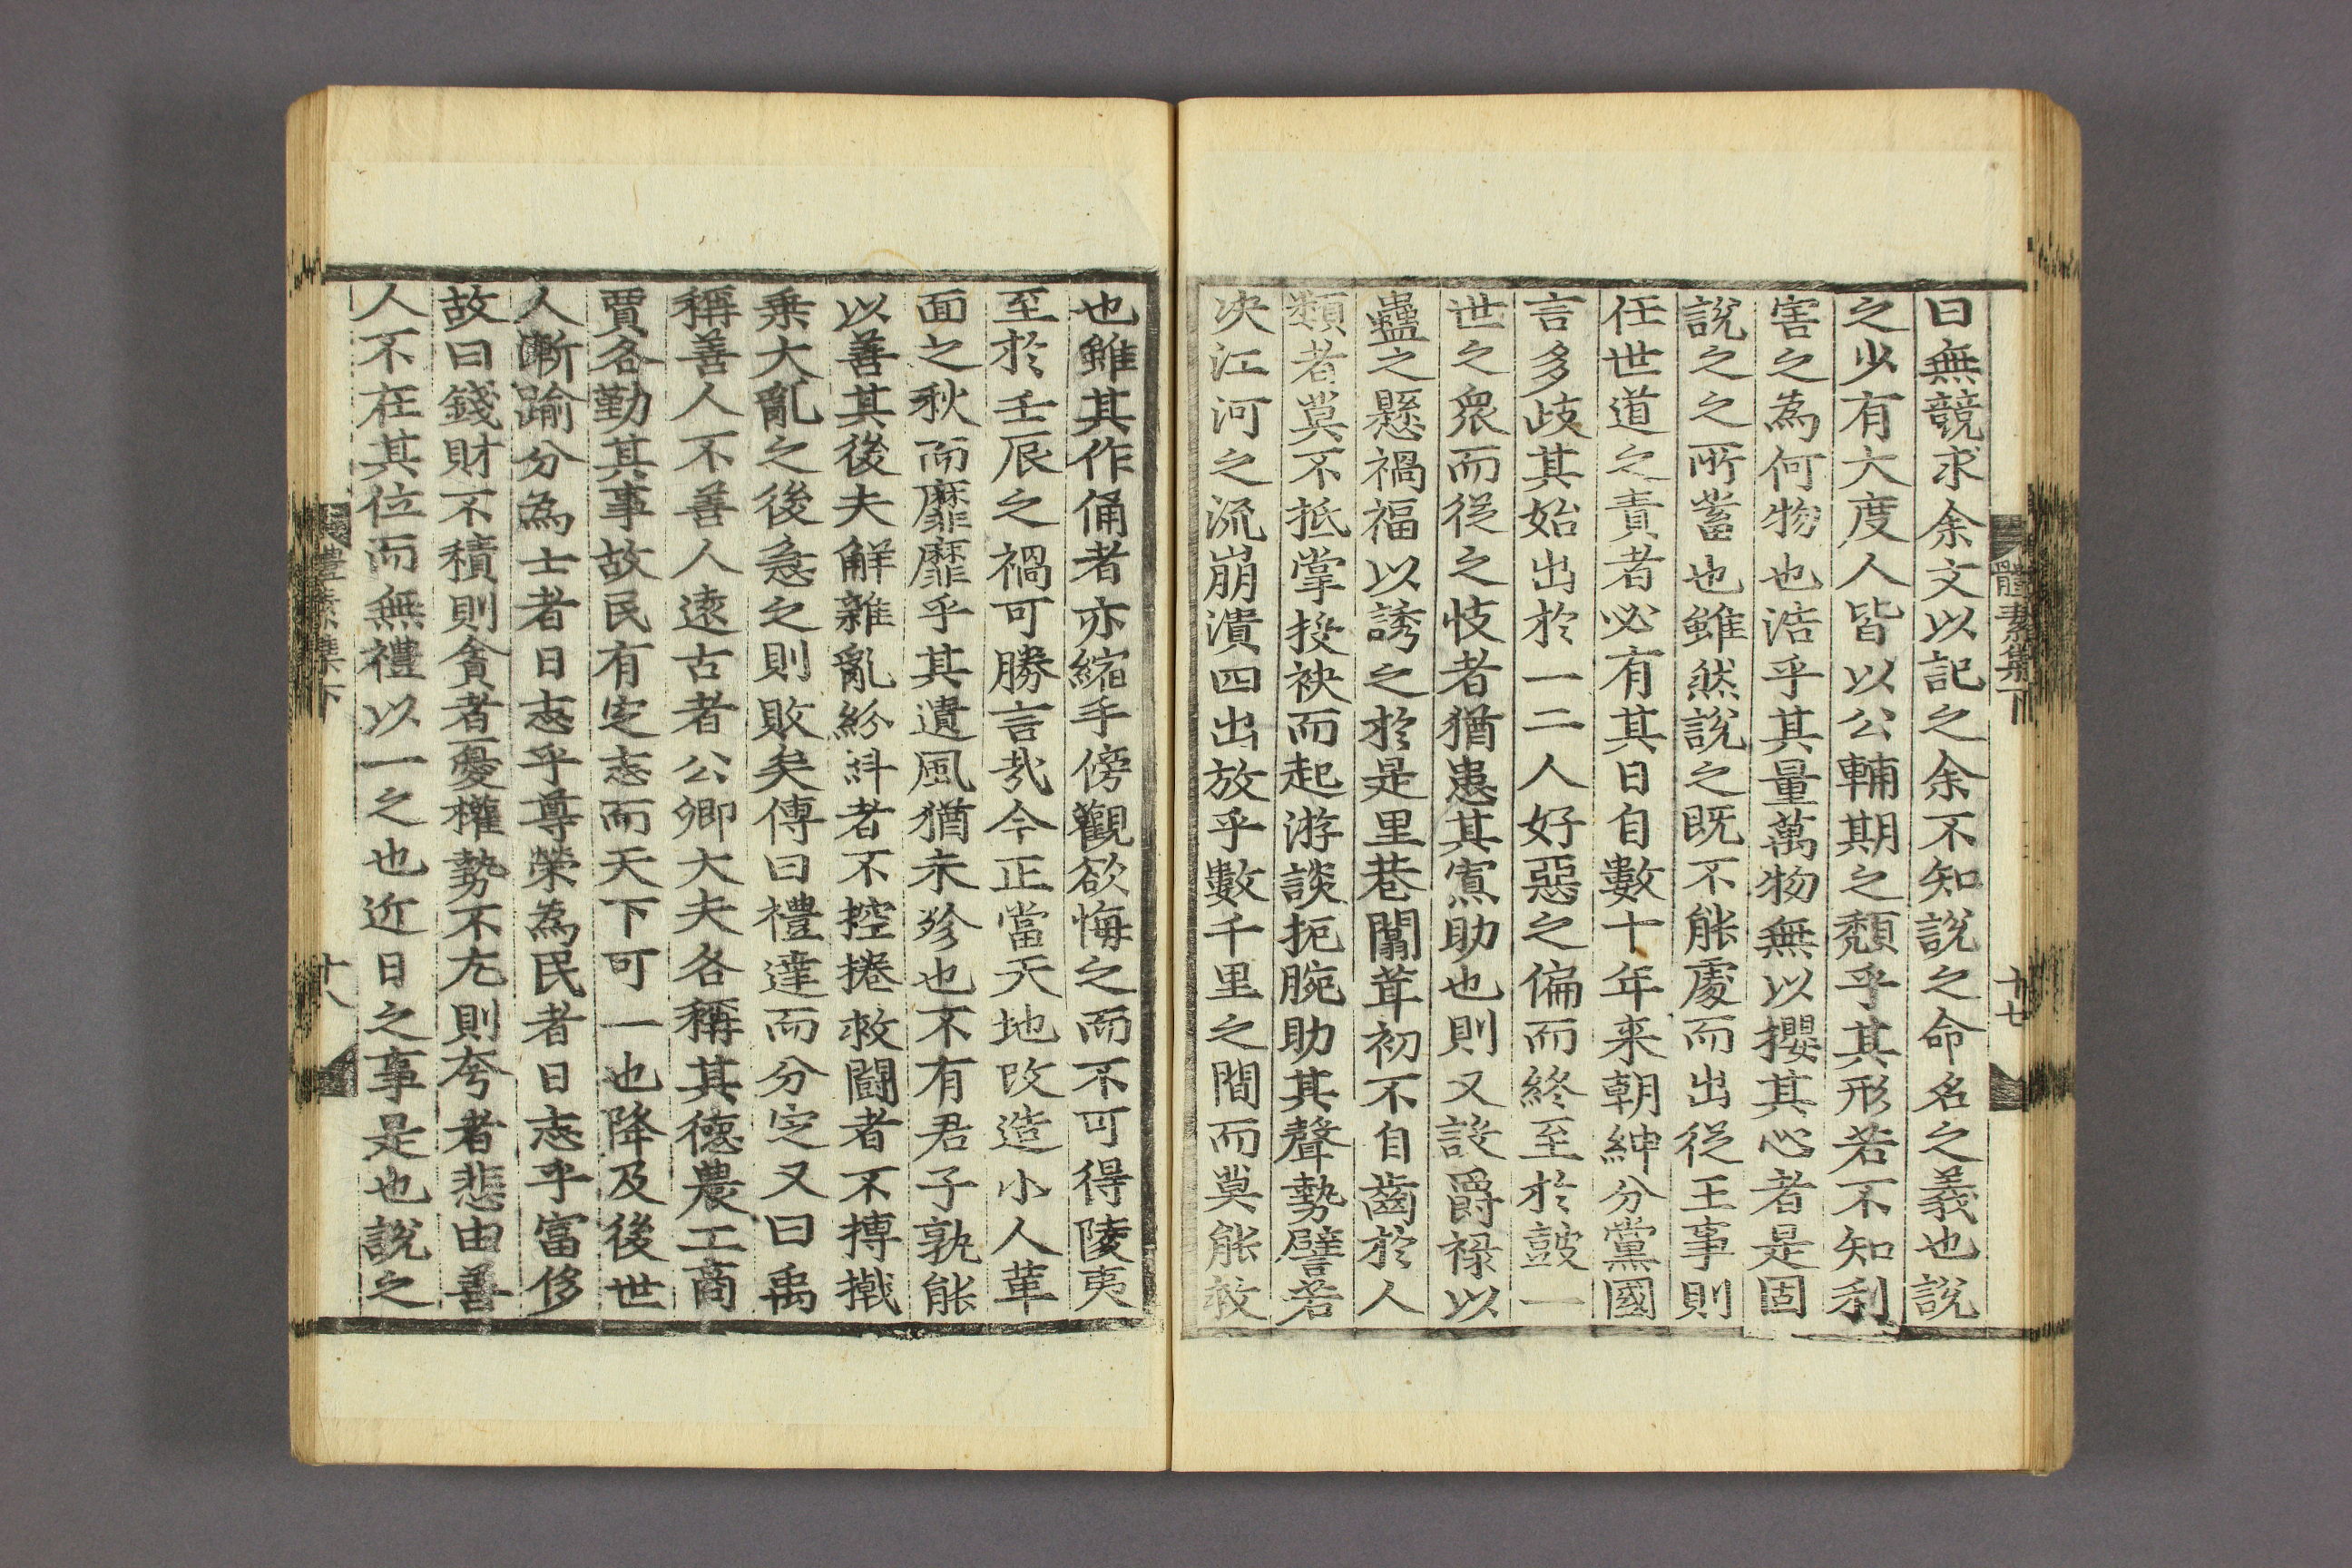 曰無競求余文以記之余不知說之命名之義也說
之少有大度人皆以公輔期之頽乎其形若不知利
害之為何物也浩乎其量萬物無以攖其心者是固
說之之所蓄也雖然說之既不能處而出從王事則
任世道之責者必有其日自數十年来朝紳分黨國
言多歧其始出於一二人好惡之偏而終至於鼓一
世之衆而從之歧者猶患其寡助也則又設爵祿以
蠱之懸禍福以誘之於是里巷闒茸初不自齒於人
類者莫不抵掌投袂而起游談扼腕助其聲勢譬若
决江河之流崩潰四出放乎數千里之間而莫能救
體素集下
十七
也雖其作俑者亦縮手傍觀欲悔之而不可得陵夷
至於壬辰之禍可勝言哉今正當天地改造小人革
面之秋而靡靡乎其遺風猶未殄也不有君子孰能
以善其後夫解雜亂紛糾者不控捲救鬪者不搏撠
乗大亂之後急之則敗矣傳曰禮達而分定又曰禹
稱善人不善人遠古者公卿大夫各稱其德農工商
賈各勤其事故民有定志而天下可一也降及後世
人漸踰分為士者日志乎尊榮為民者日志乎富侈
故曰錢財不積則貪者憂權勢不尤則夸者悲由善
人不在其位而無禮以一之也近日之事是也說之
體素集下
十八